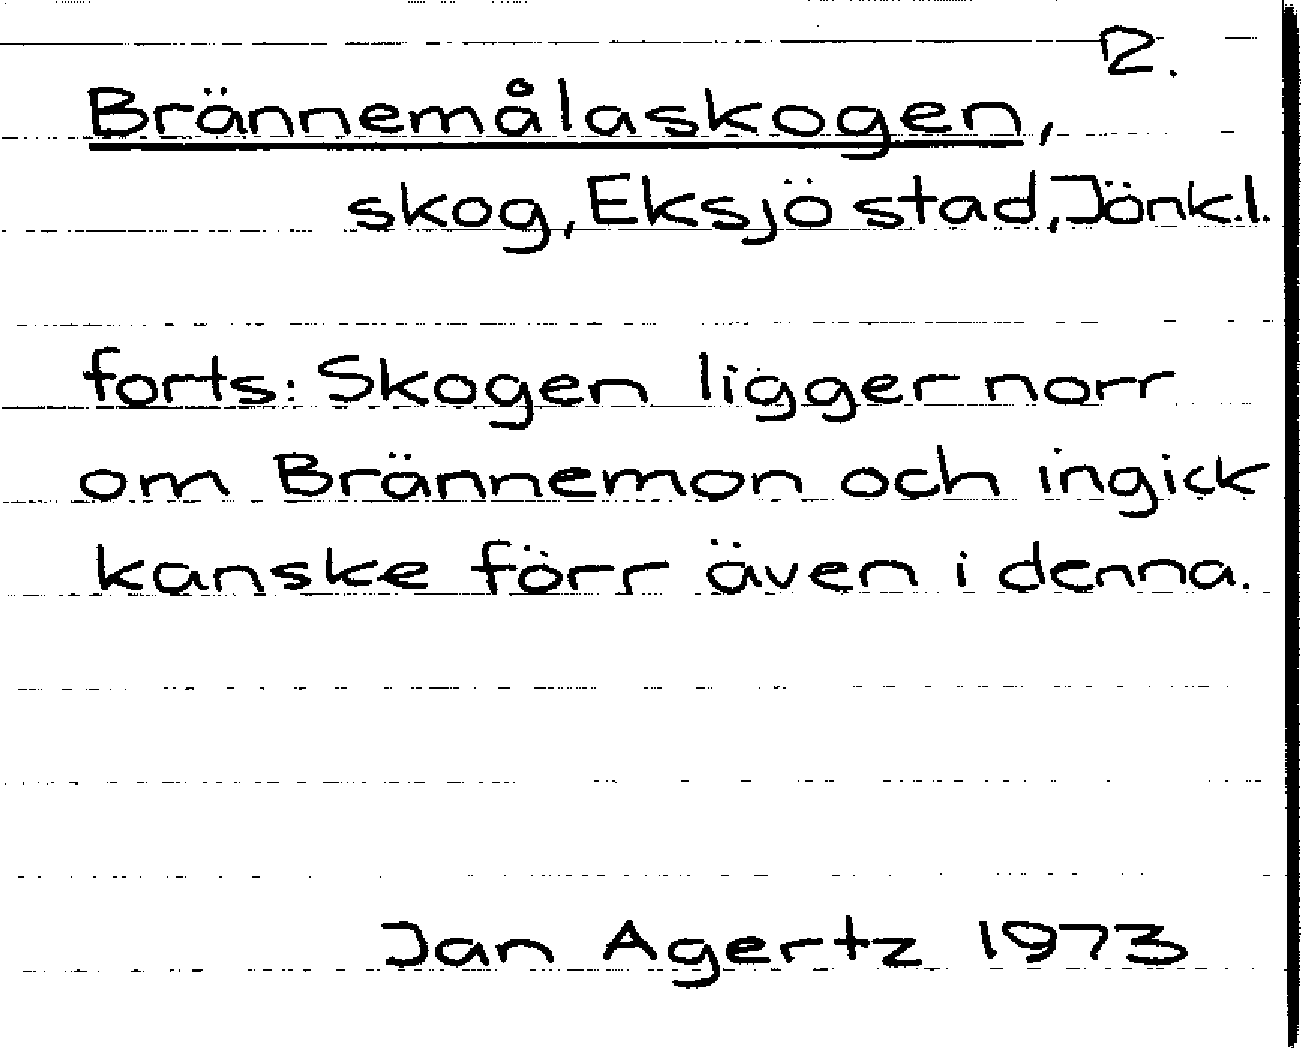 2.
Brännemålaskogen,
skog, Eksjö stad, Jönk.l.
forts: Skogen ligger norr
om Brännemon och ingick
kanske förr även i denna.
Jan Agertz 1973